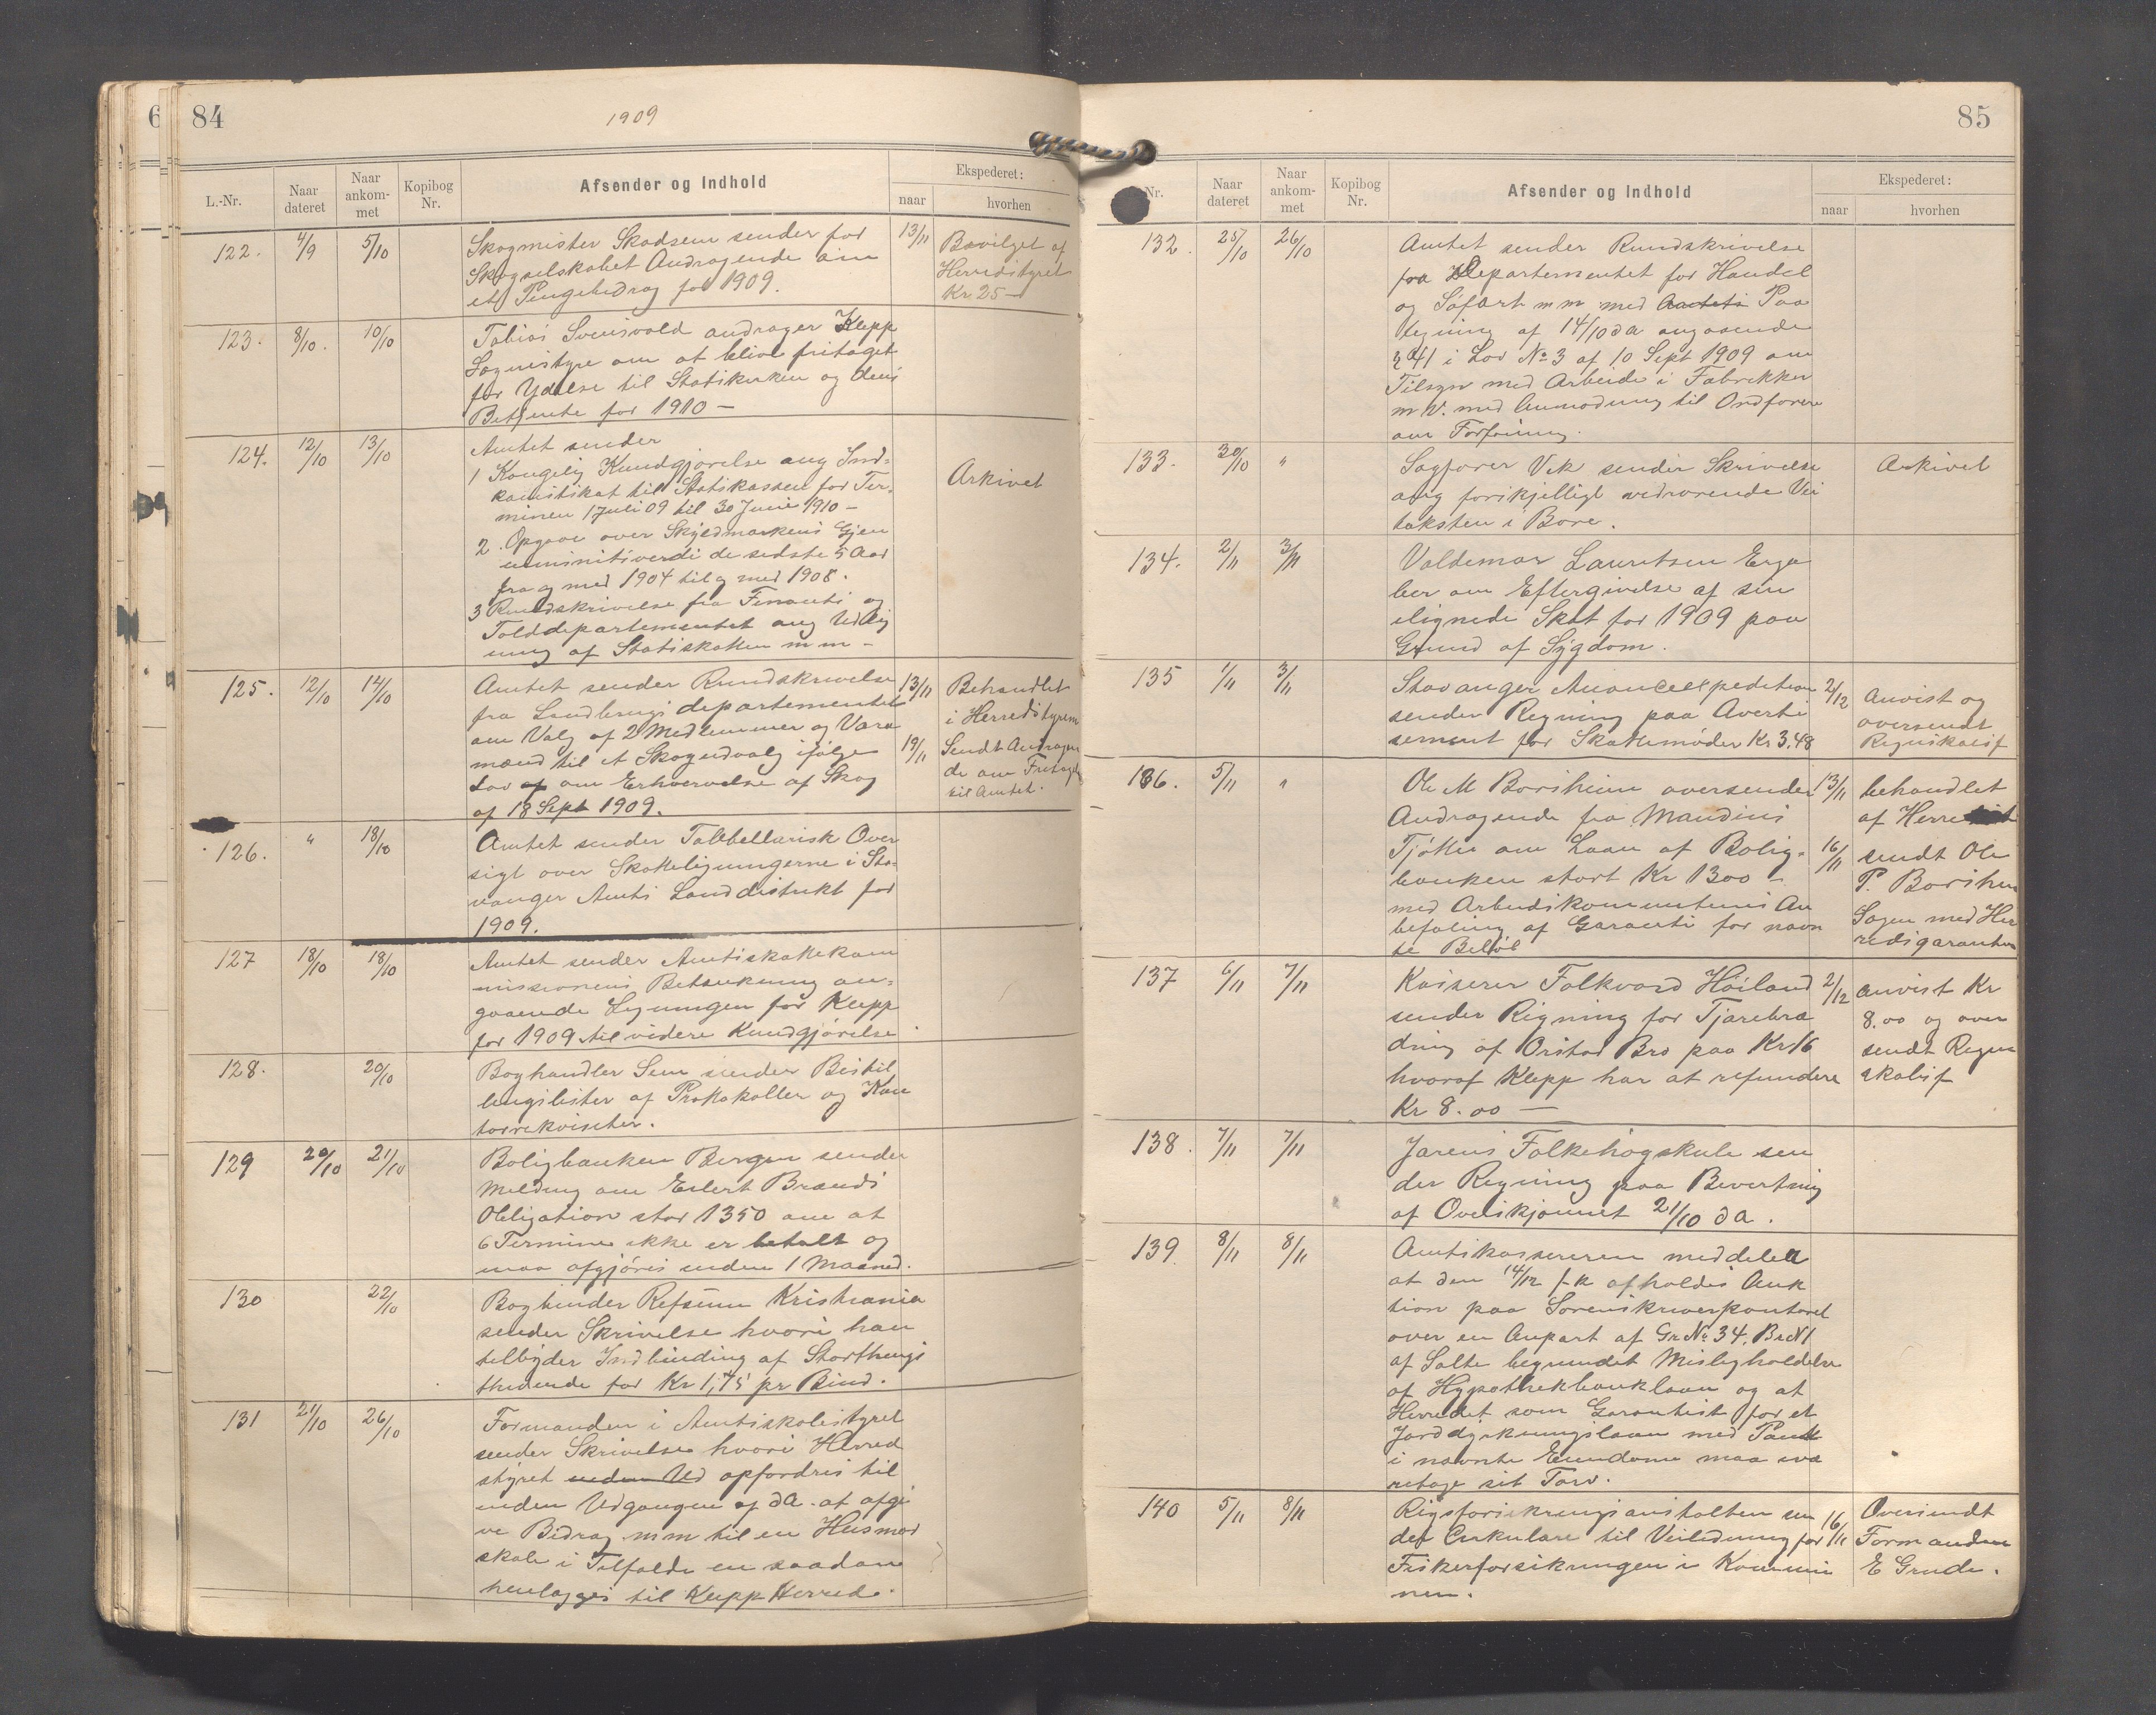 84
1909
L.-Nr.
Naar dateret
Naar ankommet
Kopibog Nr.
Afsender og Indhold
Ekspederet:
naar
hvorhen
122. 4/9 5/10
Skogmister Skadsem sender for
Skogselskabet Andragende om
et Pengebidrag for 1909.
13/11 Bevilget af
Herredstyret
Kr 25 –
123. 8/10. 10/10
Tobias Svensvold andrager Klepp
Sognestyre om at blive fritaget
for Ydelse til Statskirken og dens
Betjente for 1910 –
124. 12/10 13/10
Amtet sender
1 Kongelig Kundgjørelse ang Ind-
komstskat til Statskassen for Ter-
minen 1 Juli 09 til 30 Juni 1910 –
2. Opgave over Skyldmarkens Gjen
nemsnitsverdi de sidste 5 Aar
fra og med 1904 til og med 1908.
3 Rundskrivelse fra Finants og
Tolddepartementet ang Udlig
ning af Statsskatten m m –
Arkivet
125. 12/10 14/10
Amtet sender Rundskrivelse
fra Landbrugsdepartementet
om Valg af 2 Medlemmer og Vara
mænd til et Skogudvalg ifølge
Lov om Erhvervelse af Skog
af 18 Sept 1909.
13/11 Behandlet
i Herredstyrem
19/11 Sendt Andragen
de om Fritagels
til Amtet.
126. " 18/10
Amtet sender Tabbellarisk Over
sigt over Skatteligningerne i Sta-
vanger Amts Landdistrikt for
1909.
127 18/10 18/10
Amtet sender Amtsskattekom
missionens Betænkning an-
gaaende Ligningen for Klepp
for 1909 til videre Kundgjørelse
128. 20/10
Boghandler Sem sender Bestil
lingslister af Protokoller og Kon
torrekvisiter.
129 20/10 21/10
Boligbanken Bergen sender
Melding om Eilert Brands
Obligation stor 1350 om at
6 Termine ikke er betalt og
maa afgjøres inden 1 Maaned.
130 22/10
Bogbinder Refsum Kristiania
sender Skrivelse hvori han
tilbyder Indbinding af Storthings
tidende for Kr 1,75 pr Bind.
131 21/10 26/10
Formanden i Amtsskolestyret
sender Skrivelse hvori Herred
styret inden Ud opfordres til
inden Udgangen af d A. at afgi
ve Bidrag m m til en Husmor
skole i Tilfælde en saadan
henlægges til Klepp Herred.
85
Nr.
Naar dateret
Naar ankommet
Kopibog Nr.
Afsender og Indhold
Ekspederet:
naar
hvorhen
132. 25/10 26/10
Amtet sender Rundskrivelse
fra Departementet for Handel
og Søfart m m med Amtets Paa
tegning af 14/10 d A angaaende
§ 41 i Lov No 3 af 10 Sept 1909 om
Tilsyn med Arbeide i Fabrikker
m V. med Anmodning til Ordførere
om Forføining.
133. 30/10 "
Sagfører Vik sender Skrivelse
ang forskjelligt vedrørende Vei
taksten i Bore.
Arkivet
134. 2/11 3/11
Valdemar Lauritsen Erga
ber om Eftergivelse af sin
ilignede Skat for 1909 paa
Grund af Sygdom.
135 1/11 3/11
Stavanger Anonceexpedition
sender Regning paa Averti
sement for Skattemøder Kr 3.48
2/12 Anvist og
oversendt
Regnskabsf
136. 5/11 "
Ole M Borsheim oversender
Andragende fra Maudius
Tjøtta om Laan af Bolig-
banken stort Kr 1300 –
med Arbeidskommitteens An
befaling af Garanti for nævn
te Beløb
13/11 behandlet
af Herredst
16/11 sendt Ole
P. Borshei
Sagen med Her
redsgarantien
137 6/11 7/11
Kasserer Folkvard Høiland
sender Regning for Tjærebræ
dning af Orstad Bro paa Kr 16
hvoraf Klepp har at refundere
Kr 8.00 –
2/12 anvist Kr
8.00 og over
sendt Regn
skabsf
138. 7/11 7/11
Jærens Folkehøgskule sen
der Regning paa Bevertning
af Overskjønnet 21/10 d A.
139. 8/11 8/11
Amtskassereren meddeler
at den 14/12 f k afholdes Auk
tion paa Sorenskriverkontoret
over en Anpart af Gr No 34. Br N 1
af Salte begrundet Misligholdelse
af Hypothekbanklaan og at
Herredet som Garantist for et
Jorddyrkningslaan med Pant
i nævnte Eiendom maa va
retage sit Tarv.
140 5/11 8/11
Rigsforsikringsanstalten sen
der Cirkulære til Veiledning for
Fiskerforsikringen i Kommu
nen.
16/11 Oversendt
Formanden
E Grude.